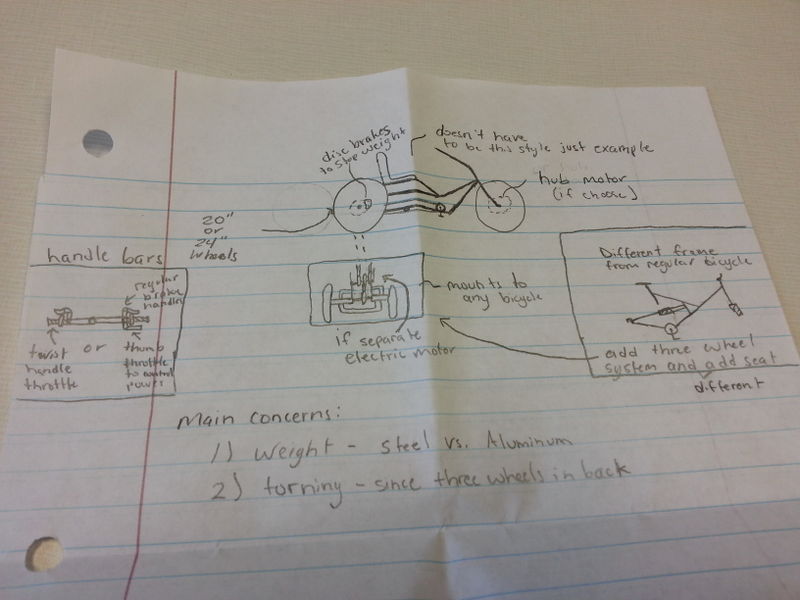 disc brakes
to stop weight
doesn't have
to be this style just example
hub motor
(if choose)
20"
or
24"
wheels
handle bars
regular
brake
handles
twist
handle
throttle
or
thumb
throttle
to control
power
mounts to
any bicycle
if separate
electric motor
Different frame
from regular bicycle
add three wheel
system and add seat
different
Main concerns:
1) Weight - steel vs. Aluminum
2) torning - since three wheels in back